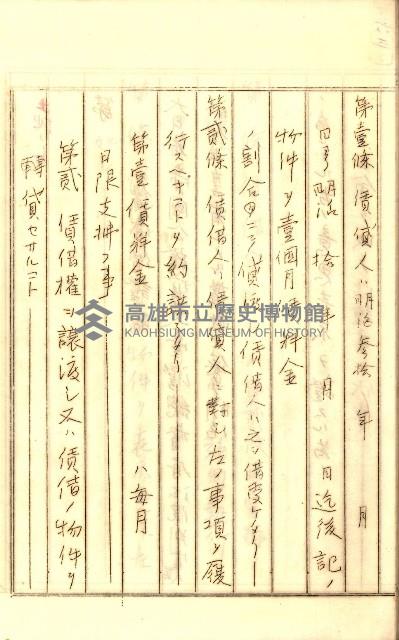 第壹條 賃貸人ハ明治參拾 年 月
日ヨリ明治 拾 年 月 日迄後記ノ
物件ヲ壹個月賃料金
ノ割合ヲ以テ賃貸シ賃借人ハ之ヲ借受ケタリ
第貳條 賃借人ハ賃貸人ニ對シ左ノ事項ヲ履
行スベキコトヲ約諾セリ
第壹 賃料金 ハ每月
日限支拂フ事
第貳 賃借權ヲ讓渡シ又ハ賃借ノ物件ヲ
轉貸セサルコト
高雄市立歷史博物館
KAOHSIUNG MUSEUM OF HISTORY